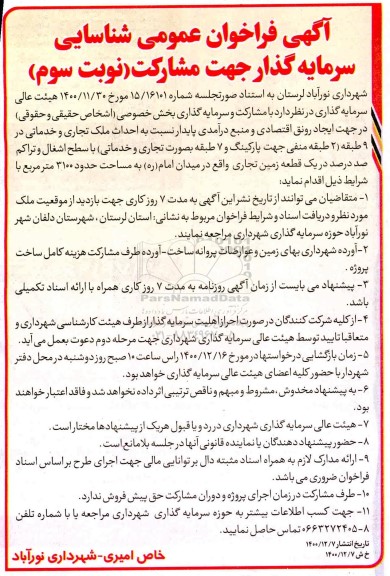 آگهی فراخوان عمومی شناسایی
سرمایه گذار جهت مشارکت(نوبت سوم)
شهرداری نورآباد لرستان به استناد صورتجلسه شماره ۱۵/۱۶۱۰۱ مورخ ۱۴۰۰/۱۱/۳۰ هیئت عالی
سرمایه گذاری در نظر دارد با مشارکت و سرمایه گذاری بخش خصوصی (اشخاص حقیقی و حقوقی)
در جهت ایجاد رونق اقتصادی و منبع درآمدی پایدار نسبت به احداث ملک تجاری و خدماتی در
۹ طبقه (۲ طبقه منفی جهت پارکینگ و ۷ طبقه بصورت تجاری و خدماتی) با سطح اشغال و تراکم
صد درصد در یک قطعه زمین تجاری واقع در میدان امام(ره) به مساحت حدود ۳۱۰۰ مترمربع با
شرایط ذیل اقدام نماید:
۱- متقاضیان می توانند از تاریخ نشر این آگهی به مدت ۷ روز کاری جهت بازدید از موقعیت ملک
مورد نظر و دریافت اسناد و شرایط فراخوان مربوط به نشانی: استان لرستان ، شهرستان دلفان شهر
نورآباد حوزه سرمایه گذاری شهرداری مراجعه نمایند.
۲-آورده شهرداری بهای زمین و عوارضات پروانه ساخت-آورده طرف مشارکت هزینه کامل ساخت
پروژه .
۳- پیشنهاد می بایست از زمان آگهی روزنامه به مدت ۷ روز کاری همراه با ارائه اسناد تکمیلی
باشد.
۴- از کلیه شرکت کنندگان در صورت احراز اهلیت سرمایه گذار از طرف هیئت کارشناسی شهرداری و
متعاقبا تایید توسط هیئت عالی سرمایه گذاری شهرداری جهت مرحله دوم دعوت بعمل می آید.
۵- زمان بازگشایی درخواستها در مورخ ۱۴۰۰/۱۲/۱۶ راس ساعت ۱۰ صبح روز دوشنبه در محل دفتر
شهردار با حضور کلیه اعضای هیئت عالی سرمایه گذاری خواهد بود.
۶- به پیشنهاد مخدوش، مشروط و مبهم و ناقص ترتیبی اثر داده نخواهد شد و فاقد اعتبار خواهند
بود.
۷- هیئت عالی سرمایه گذاری شهرداری در رد و یا قبول هریک از پیشنهادها مختار است .
۸- حضور پیشنهاد دهندگان یا نماینده قانونی آنها در جلسه بلامانع است .
۹- ارائه مدارک لازم به همراه اسناد مثبته دال بر توانایی مالی جهت اجرای طرح بر اساس اسناد
فراخوان ضروری می باشد.
۱۰- طرف مشارکت در زمان اجرای پروژه و دوران مشارکت حق پیش فروش ندارد.
۱۱- جهت کسب اطلاعات بیشتر به حوزه سرمایه گذاری شهرداری مراجعه یا با شماره تلفن
۰۶۶۳۲۷۲۴۰۵-۸ تماس حاصل نمایید.
تاریخ انتشار ۱۴۰۰/۱۲/۷
خ ش ۱۴۰۰/۱۲/۷
خاص امیری-شهرداری نورآباد